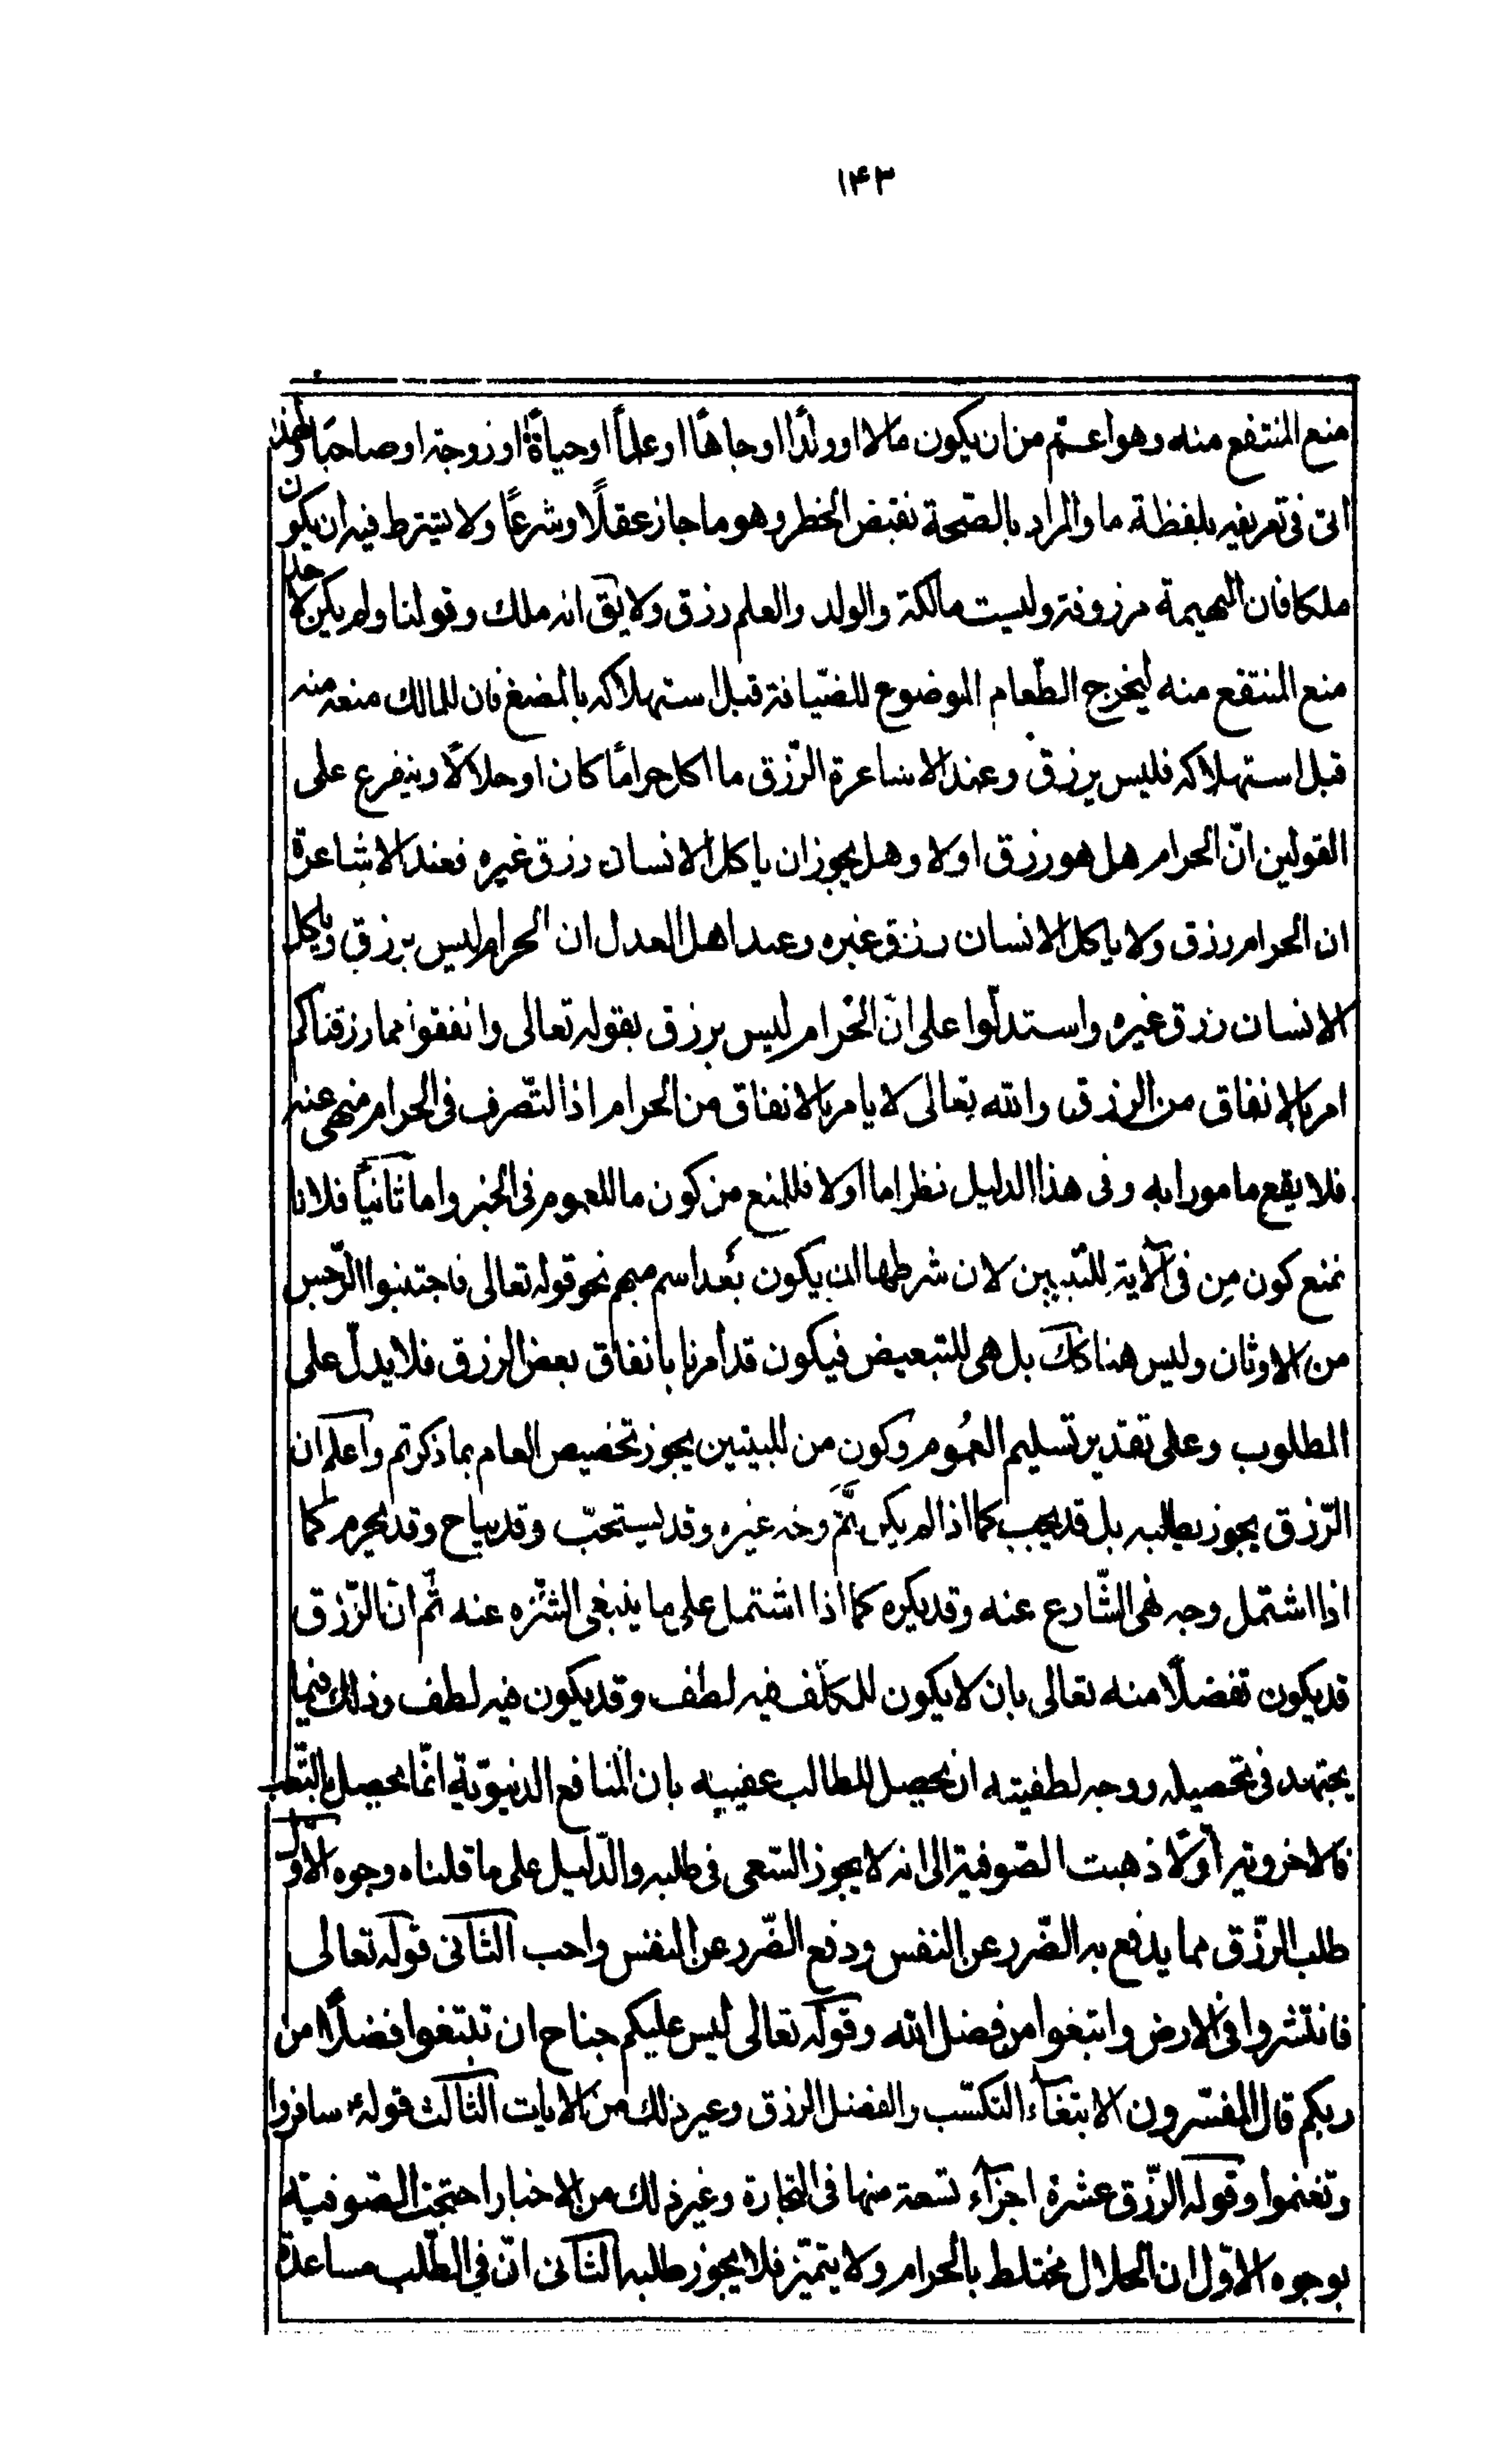 ١۴٣
منع المنتفع منه وهو اعم من ان يكون مالا او ولدًا او جاهًا او علمًا او حياةً او زوجة او صاحبًا ولهذا
اتى فى تعريفه بلفظة ما والمراد بالصّحة نقيض الخطر وهو ما جاز عقلًا وشرعًا ولا يشترط فيه ان يكون
ملكا فان البهيمة مرزوقة وليست مالكة والولد والعلم رزق ولا يق انه ملك وقولنا ولم يكن لاحد
منع المنتفع منه ليخرج الطّعام الموضوع للضّيافة قبل استهلاكه بالمضغ فان للمالك منعه منه
قبل استهلاكه فليس برزق وعند الاشاعرة الرّزق ما اكل حرامًا كان او حلالًا ويتفرع على
القولين انّ الحرام هل هو رزق اولا وهل يجوز ان ياكل الانسان رزق غيره فعند الاشاعرة
ان الحرام رزق ولا ياكل الانسان رزق غيره وعند اهل العدل ان الحرام ليس برزق وياكل
الانسان رزق غيره واستدلّوا على انّ الحرام ليس برزق بقوله تعالى وانفقوا مما رزقناكم
امر بالانفاق من الرزق والله تعالى لا يامر بالانفاق من الحرام اذ التّصرف فى الحرام منهى عنه
فلا يقع مامورا به وفى هذا الدليل نظر اما اولا فللمنع من كون ما للعموم فى الخبر واما ثانيًا فلانا
نمنع كون مِن فى الآية للتّبيين لان شرطها ان يكون بعد اسم مبهم نحو قوله تعالى فاجتنبوا الرّجس
من الاوثان وليس هنا كك بل هى للتبعيض فيكون قد امرنا بانفاق بعض الرزق فلا يدلّ على
المطلوب وعلى تقدير تسليم العُموم وكون من للتبيين يجوز تخصيص العام بما ذكرتم واعلم ان
الرّزق يجوز طلبه بل قد يجب كما اذا لم يكن ثَمّ وجه غيره وقد يستحبّ وقد يباح وقد يحرم كما
اذا اشتمل وجه نهى الشّارع عنه وقد يكره كما اذا اشتمل على ما ينبغى التنزه عنه ثم انّ الرّزق
قد يكون تفضلًا منه تعالى بان لا يكون للمكلّف فيه لطف وقد يكون فيه لطف وذلك فيما
يجتهد فى تحصيله ووجه لطفيته ان يحصل للطالب عقيبه بان المنافع الدنيويّة انّما يحصل بالتّعب
فالاخروية اولًا ذهبت الصّوفية الى انه لا يجوز السّعى فى طلبه والدّليل على ما قلناه وجوه الاوّل
طلب الرزّق مما يدفع به الضّرر عن النفس ودفع الضّرر عن النفس واجب الثّانى قوله تعالى
فانتشروا فى الارض وابتغوا من فضل الله وقوله تعالى ليس عليكم جناح ان تبتغوا فضلًا من
ربكم قال المفسّرون الابتغاء التكسّب والفضل الرزق وغير ذلك من الايات الثّالث قولهٔ سافروا
وتغنموا وقوله الرّزق عشرة اجزآء تسعة منها فى التجارة وغير ذلك من الاخبار احتجت الصّوفية
بوجوه الاوّل ان الحلال مختلط بالحرام ولا يتميّز فلا يجوز طلبه الثّانى انّ فى الطّلب مساعدة